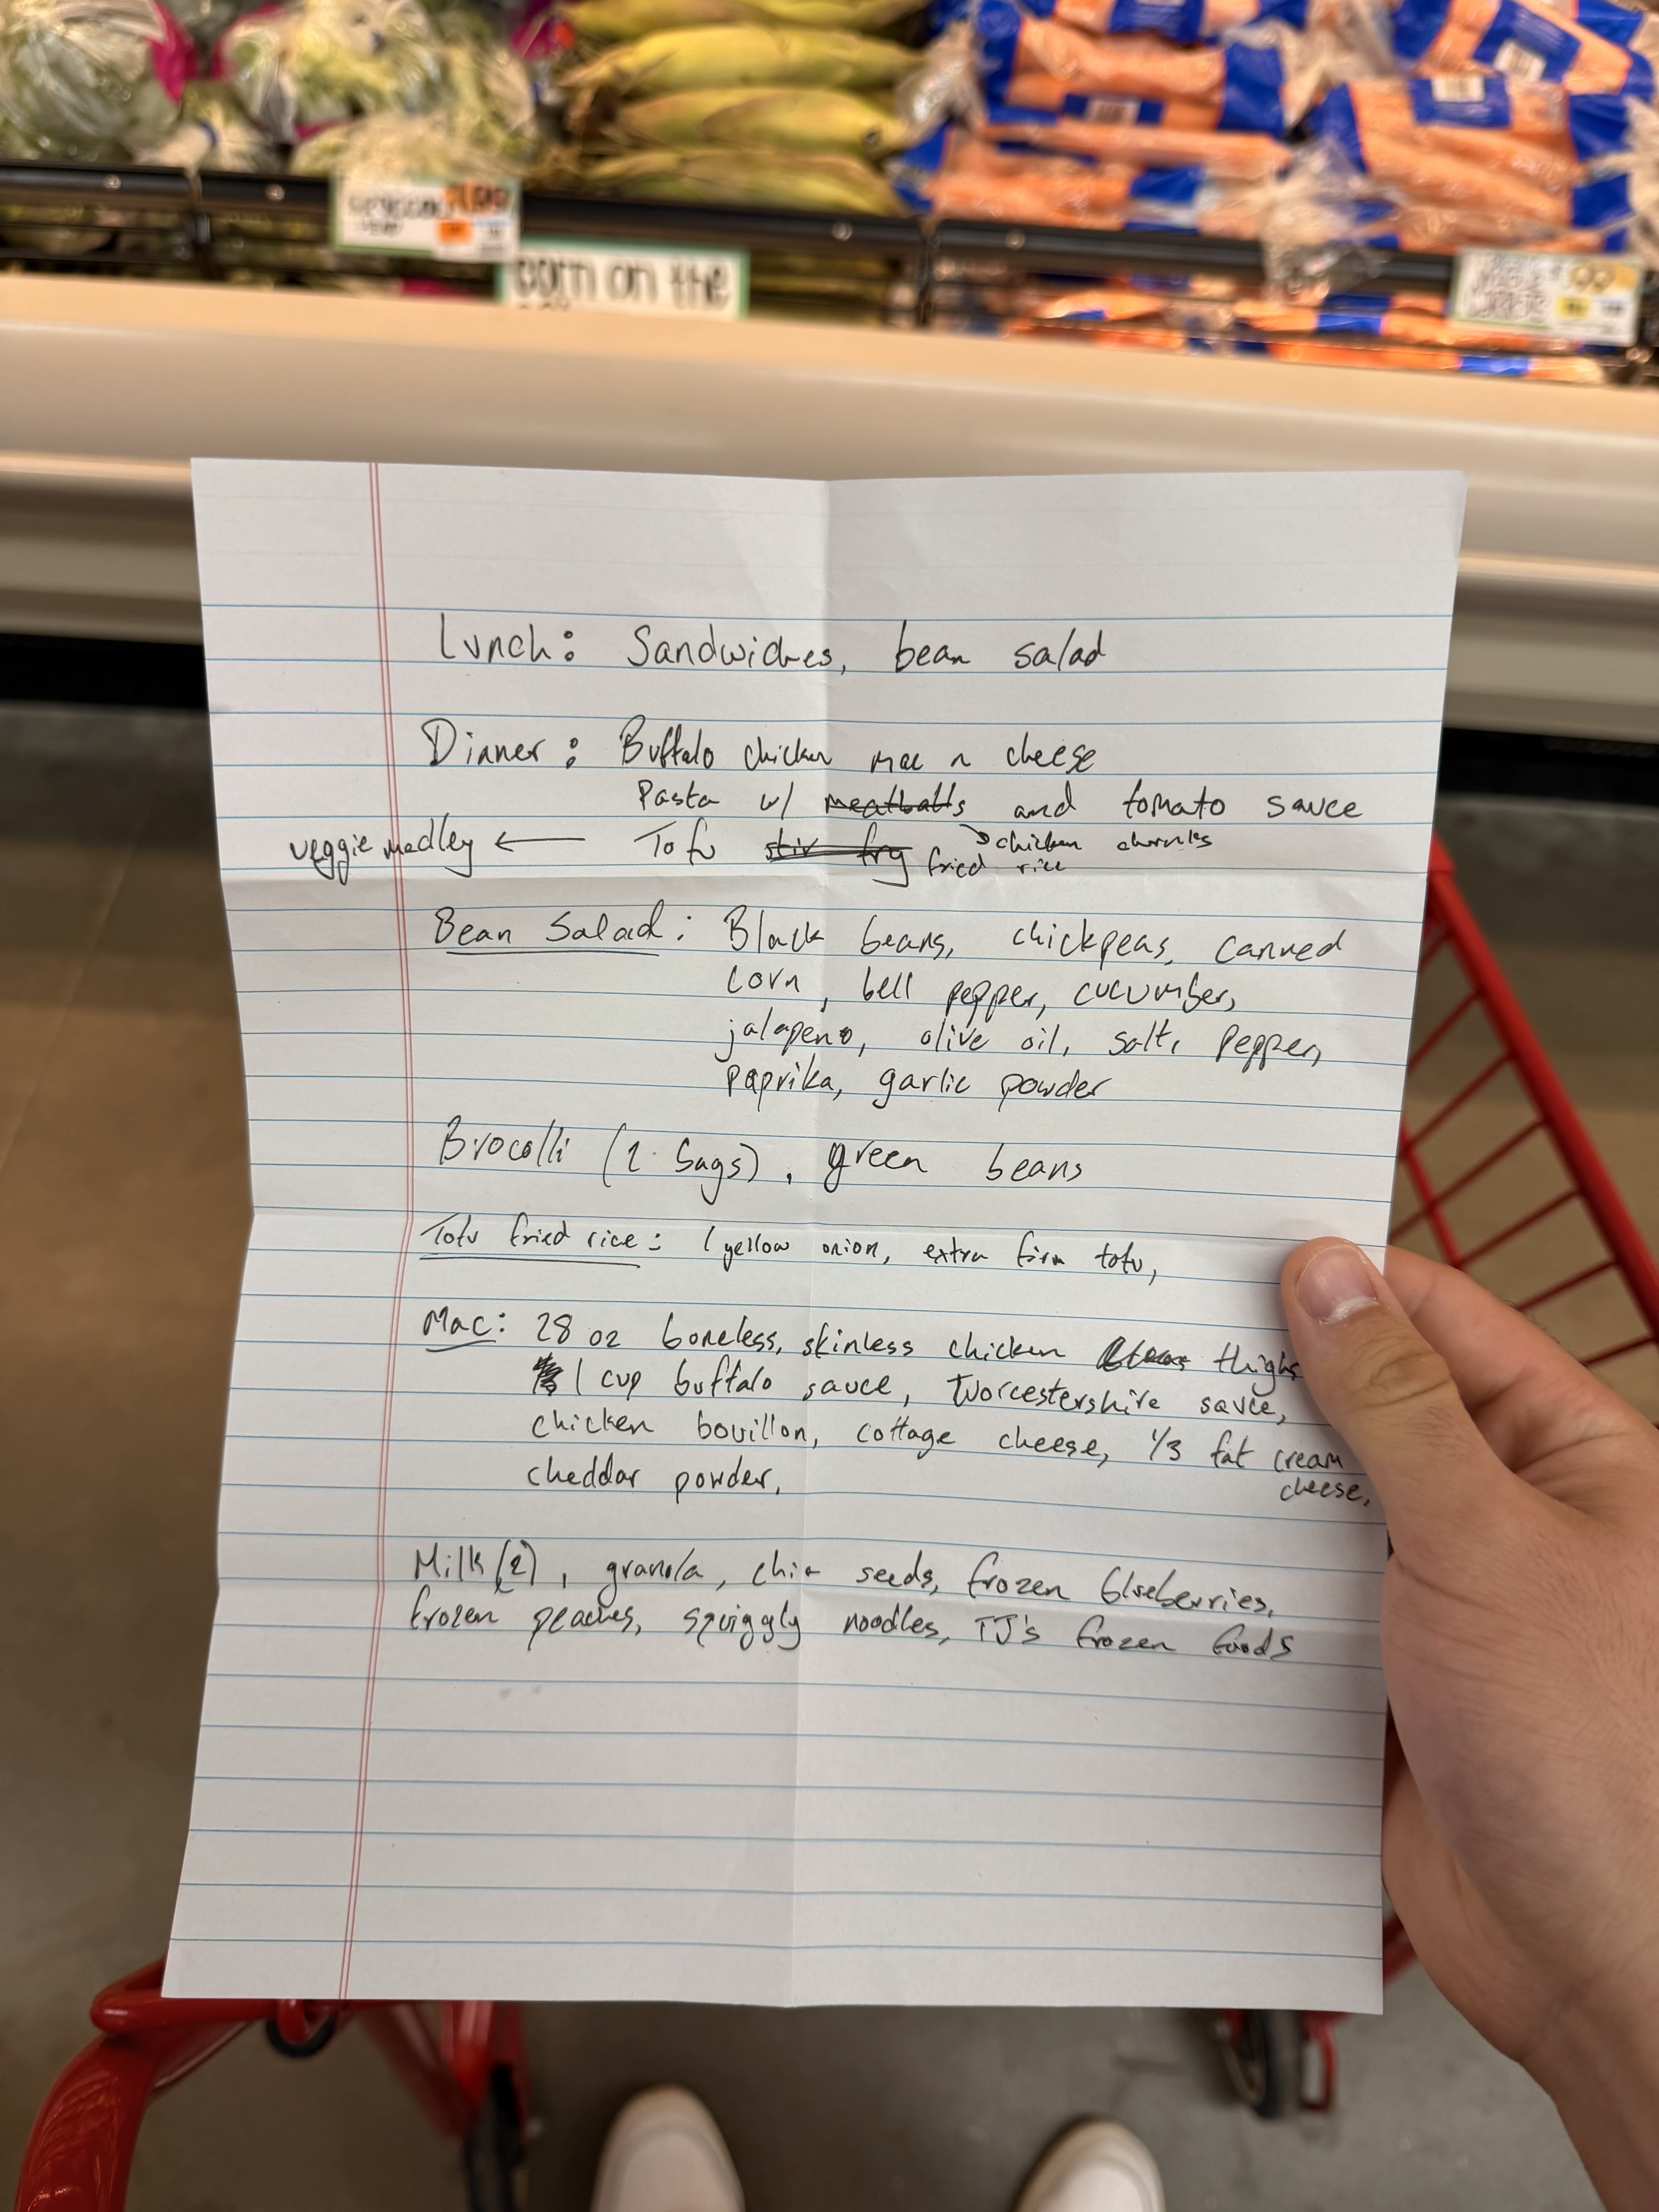 corn on the
Lunch: Sandwiches, bean salad
Dinner: Buffalo chicken mac n cheese
Pasta w/ meatballs and tomato sauce
chicken chunks
veggie medley ← Tofu stir fry fried rice
Bean Salad: Black beans, chickpeas, canned
corn, bell pepper, cucumber,
jalapeno, olive oil, salt, pepper,
paprika, garlic powder
Brocolli (2 bags), green beans
Tofu fried rice: 1 yellow onion, extra firm tofu,
Mac: 28 oz boneless, skinless chicken thighs
1 cup buffalo sauce, Worcestershire sauce,
chicken bouillon, cottage cheese, 1/3 fat cream
cheese,
cheddar powder,
Milk (2), granola, chia seeds, frozen blueberries,
frozen peaches, squiggly noodles, TJ's frozen foods